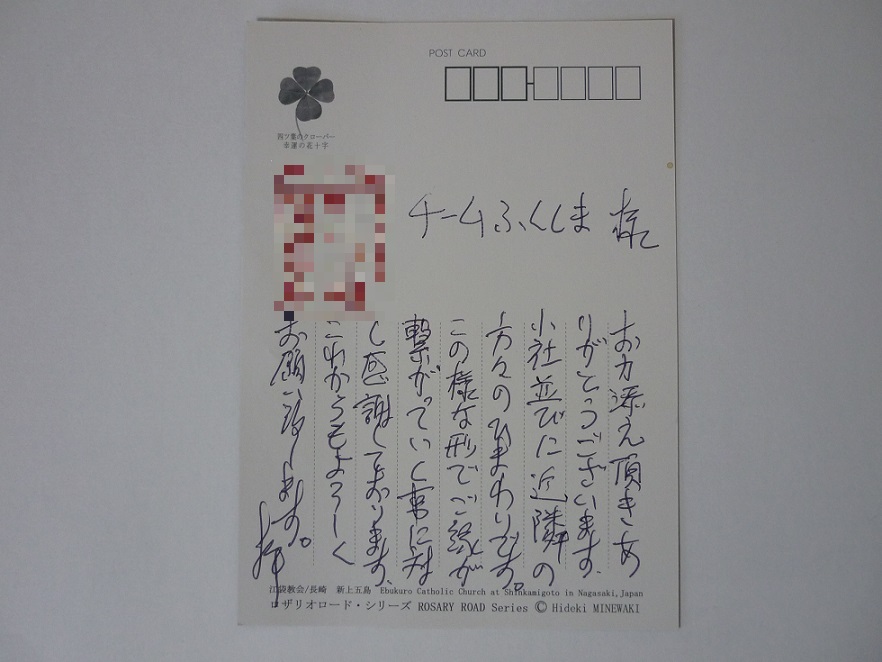 POST CARD
四ツ葉のクローバー
幸運の花十字
チームふくしま 様
お力添え頂きあ
りがとうございます。
小社並びに近隣の
方々のひまわりです。
この様な形でご縁が
繋がっていく事に対
し感謝しております。
これからもよろしく
お願い致します。
拝
江袋教会/長崎 新上五島 Ebukuro Catholic Church at Shinkamigoto in Nagasaki,Japan
ロザリオロード・シリーズ ROSARY ROAD Series © Hideki MINEWAKI